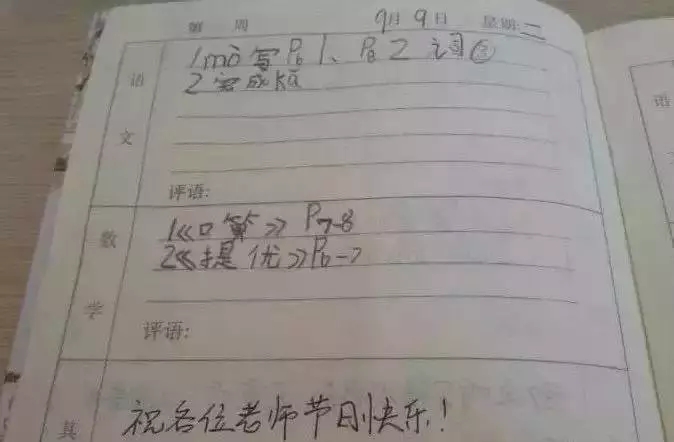 第 周 9月9日 星期:二
语文
1mò写P61、P82词②
2完成kā
评语:
数学
1《口算》P7-8
2《提优》P6-7
评语:
其
祝各位老师节日快乐!
语